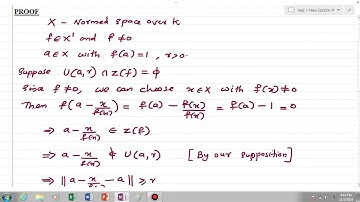 PROOF
X - Normed space over K
f ∈ X' and f ≠ 0
a ∈ X with f(a) = 1, r > 0.
Suppose U(a, r) ∩ Z(f) = ϕ
Since f ≠ 0, we can choose x ∈ X with f(x) ≠ 0
Then f(a - x/f(x)) = f(a) - f(x)/f(x) = f(a) - 1 = 0
⇒ a - x/f(x) ∈ Z(f)
⇒ a - x/f(x) ∉ U(a, r) [By our supposition]
⇒ ‖a - x/f(x) - a‖ ≥ r